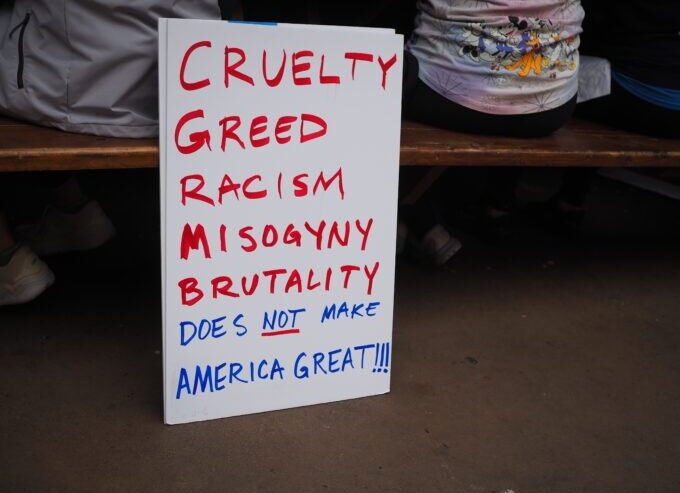 CRUELTY
GREED
RACISM
MISOGYNY
BRUTALITY
DOES NOT MAKE
AMERICA GREAT!!!